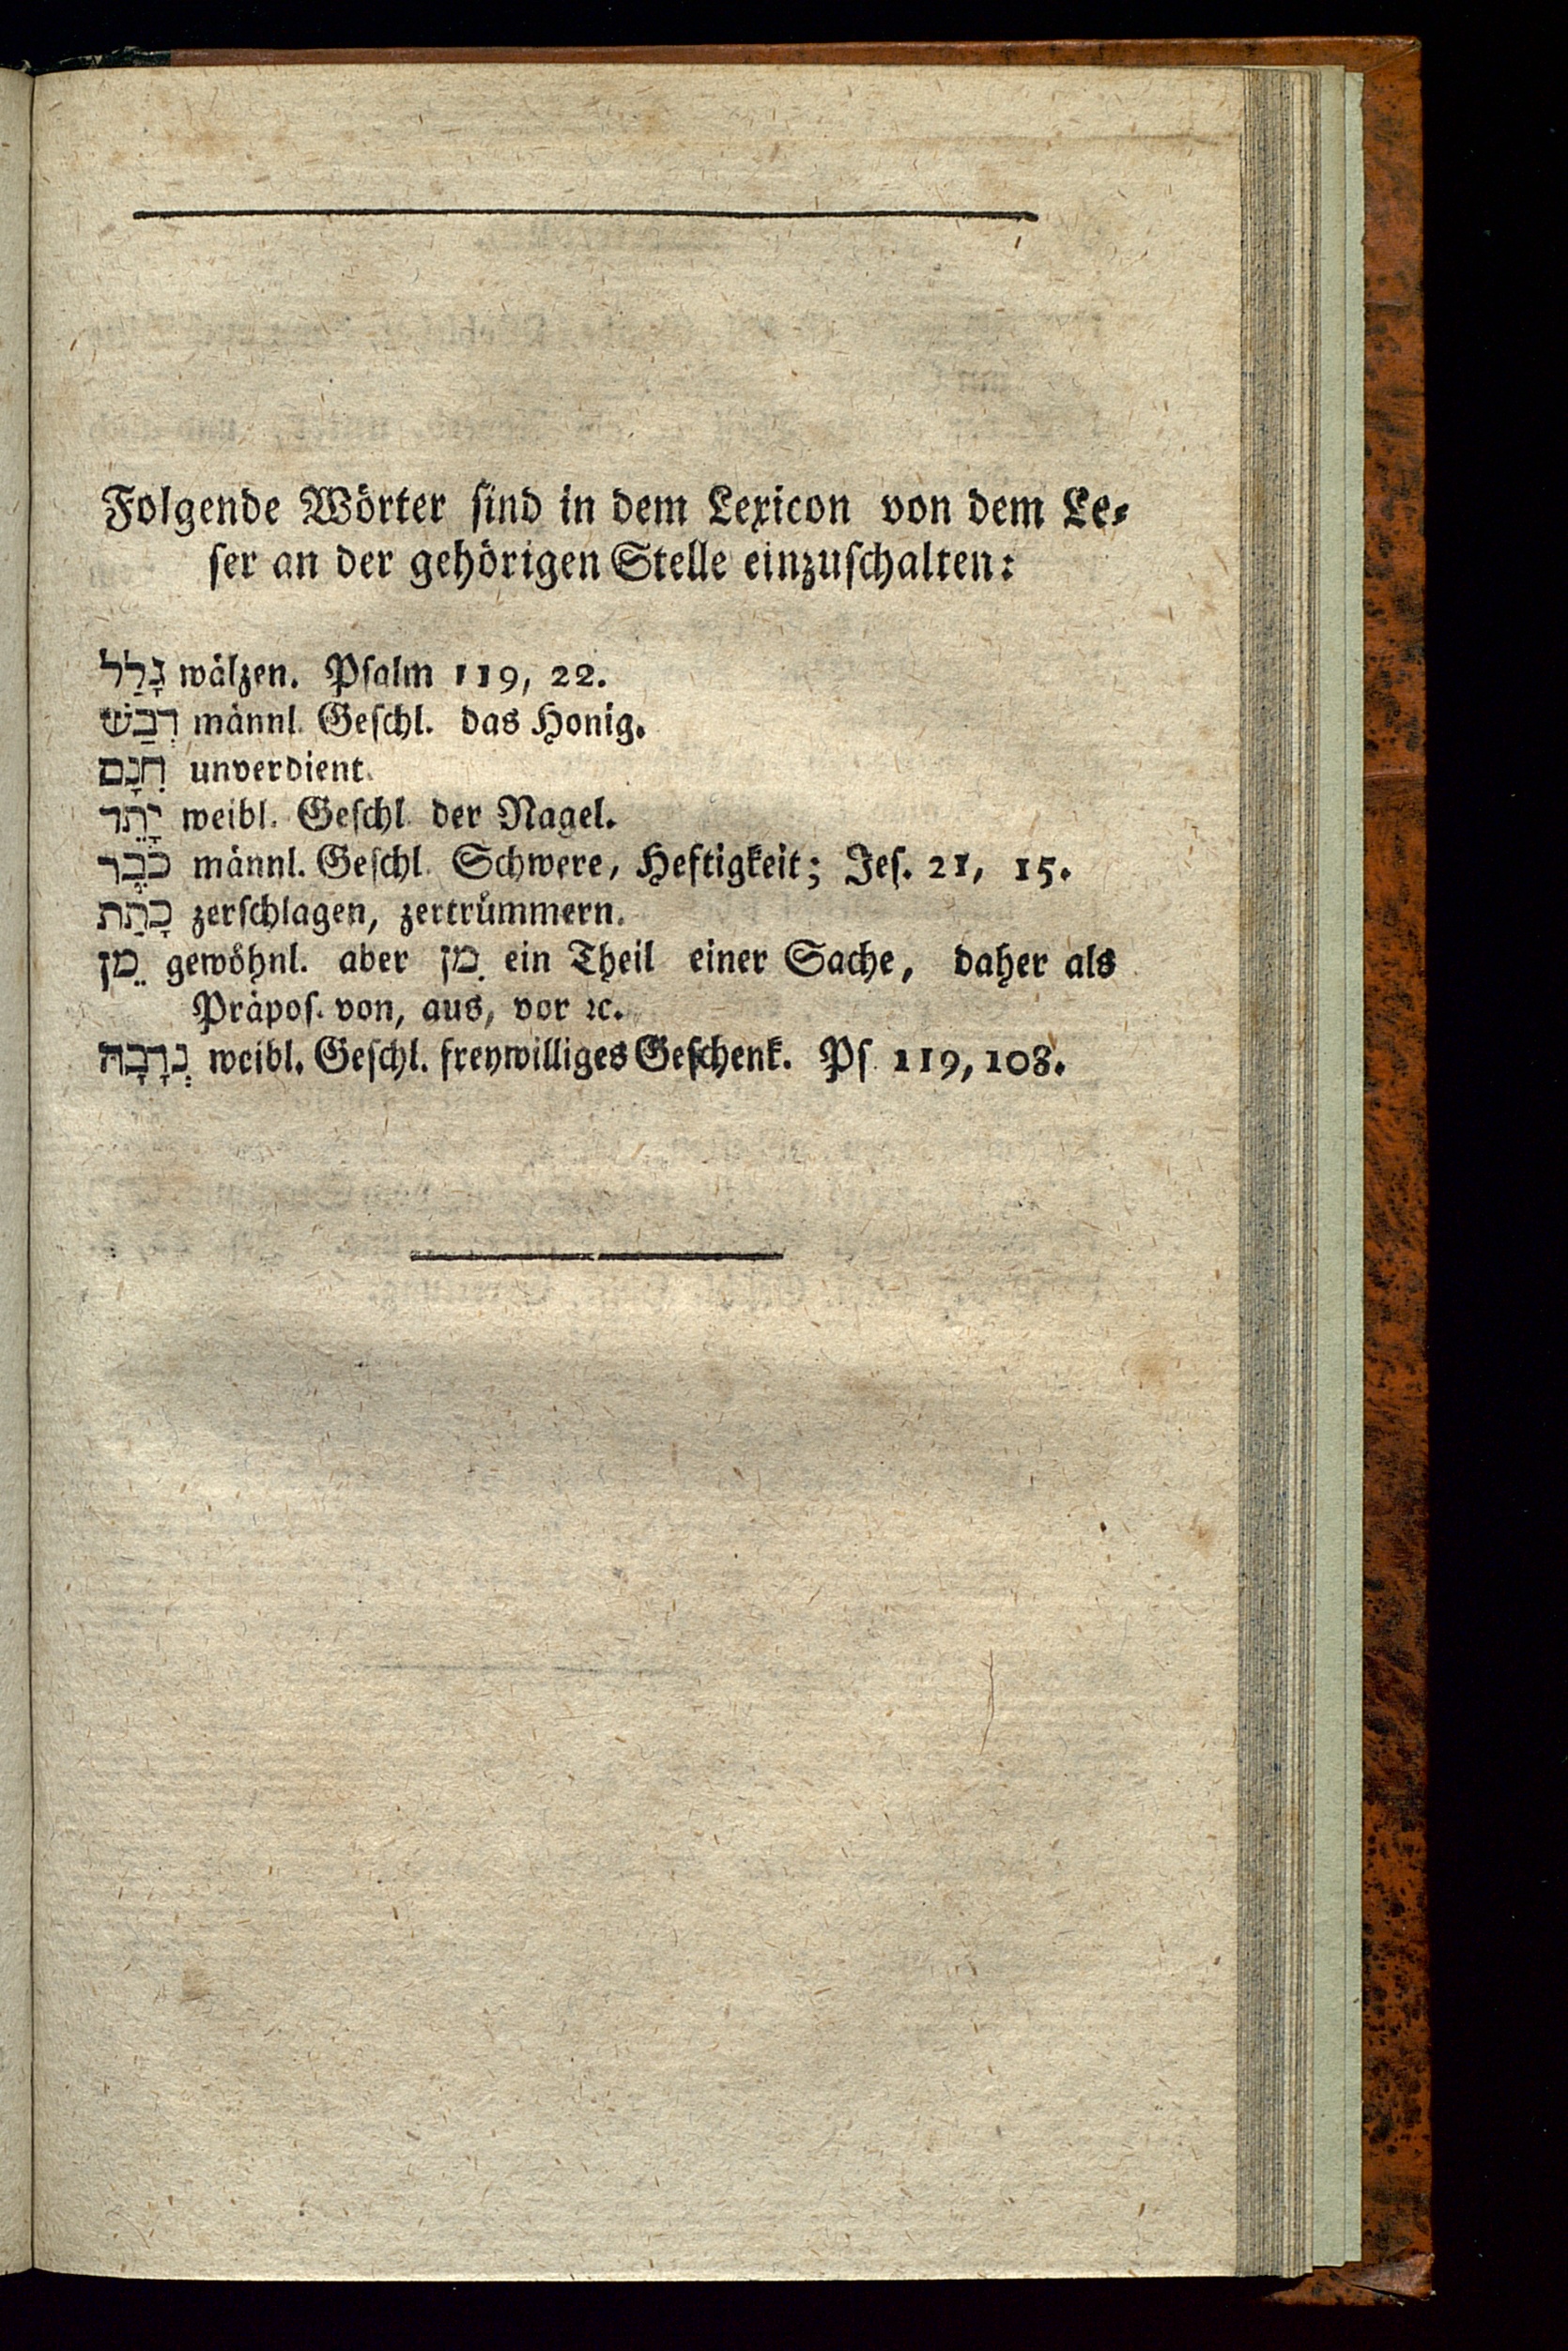 Folgende Wörter sind in dem Lexicon von dem Le⸗
ser an der gehörigen Stelle einzuschalten:
גָלַל wälzen. Psalm 119, 22.
דְבַשׁ männl. Geschl. das Honig.
חִנָם unverdient.
יָתֵד weibl. Geschl. der Nagel.
כֹבֶד männl. Geschl. Schwere, Heftigkeit; Jes. 21, 15.
כָתַת zerschlagen, zertrümmern.
מֵן gewöhnl. aber מִן ein Theil einer Sache, daher als
Präpos. von, aus, vor ꝛc.
נְדָבָה weibl. Geschl. freywilliges Geschenk. Ps. 119, 108.